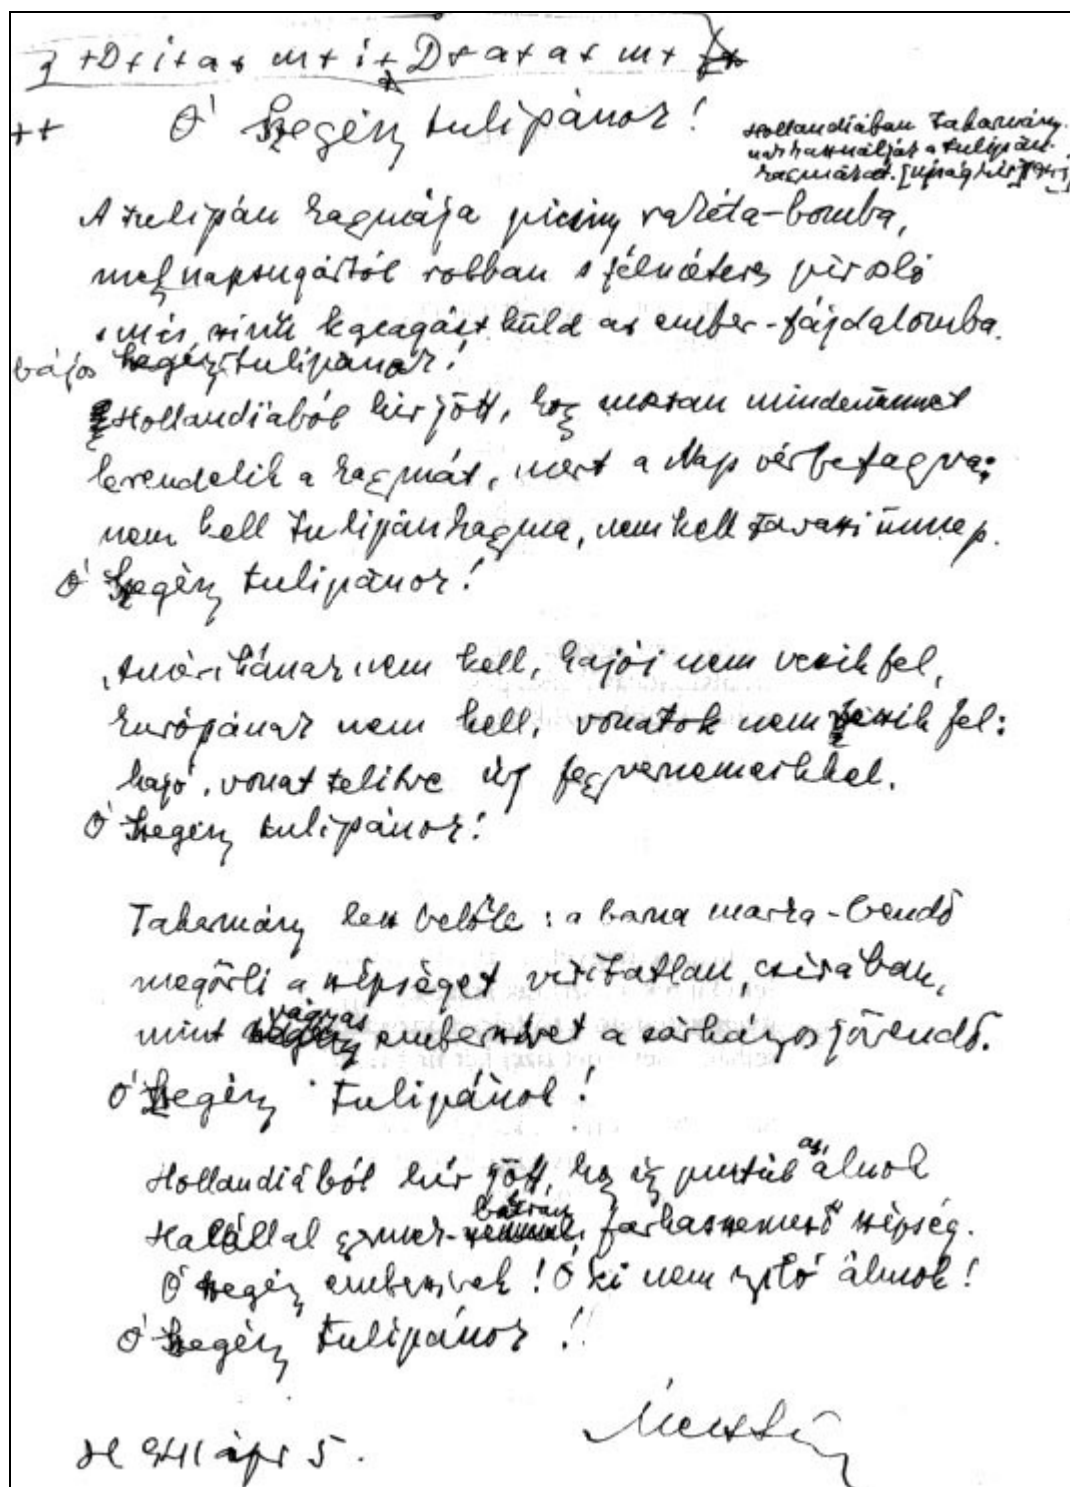 Ó szegény tulipánok!
Hollandiában takarmány-
nak használják a tulipán-
hagmákat. [újsághír]
A tulipán hagmája piciny rakéta-bomba,
mely napsugártól robban s félméteres piroló
s más színű lángját küld az ember-fájdalomba.
bájos tulipánok!
Hollandiából hír jött, hogy mostan mindenünnet
berendelik a hagymát, mert a Nap vérbefagyva;
nem kell tulipánhagyma, nem kell tavaszi ünnep.
Ó szegény tulipánok!
Amérikának nem kell, hajói nem veszik fel,
Európának nem kell, vonatok nem veszik fel:
hajó, vonat telítve új fegyvernemekkel.
Ó szegény tulipánok!
Takarmány lesz belőle: a barna marha-bendő
megőrli a szépséget virítatlan, csírában,
mint vágyas emberszívet a sárkányos jövendő.
Ó szegény tulipánok!
Hollandiából hír jött, hogy így pusztúl az álnok
Halállal gyermek-bátran farkasszemező szépség.
Ó szegény emberszívek! Ó ki nem nyíló álmok!
Ó szegény tulipánok!!
ápr 5.